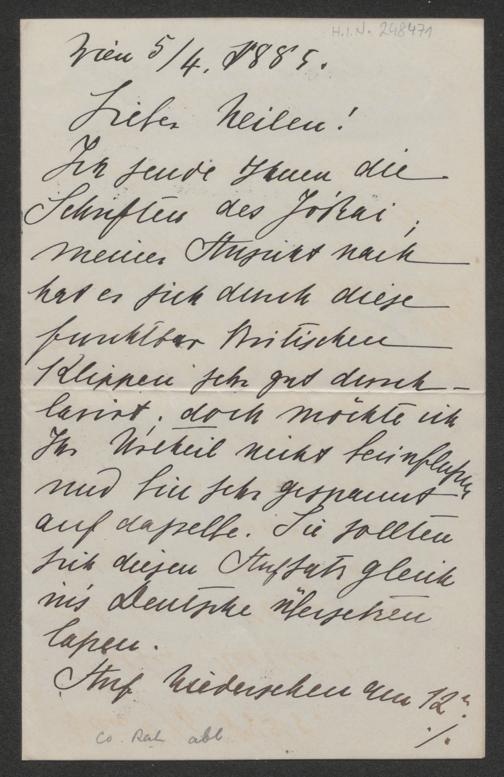 H.I.N. 248471
Wien 5/4. 1885.
Lieber Weilen!
Ich sende Ihnen die
Schriften des Jókai,
meiner Ansicht nach
hat er sich durch diese
furchtbar kritischen
Klippen sehr gut durch-
lavirt, doch möchte ich
Ihr Urtheil nicht beinflußen
und bin sehr gespannt
auf dasselbe. Sie sollten
sich diesen Aufsatz gleich
in's Deutsche übersetzen
laßen.
Auf Wiedersehen am 12n
./.